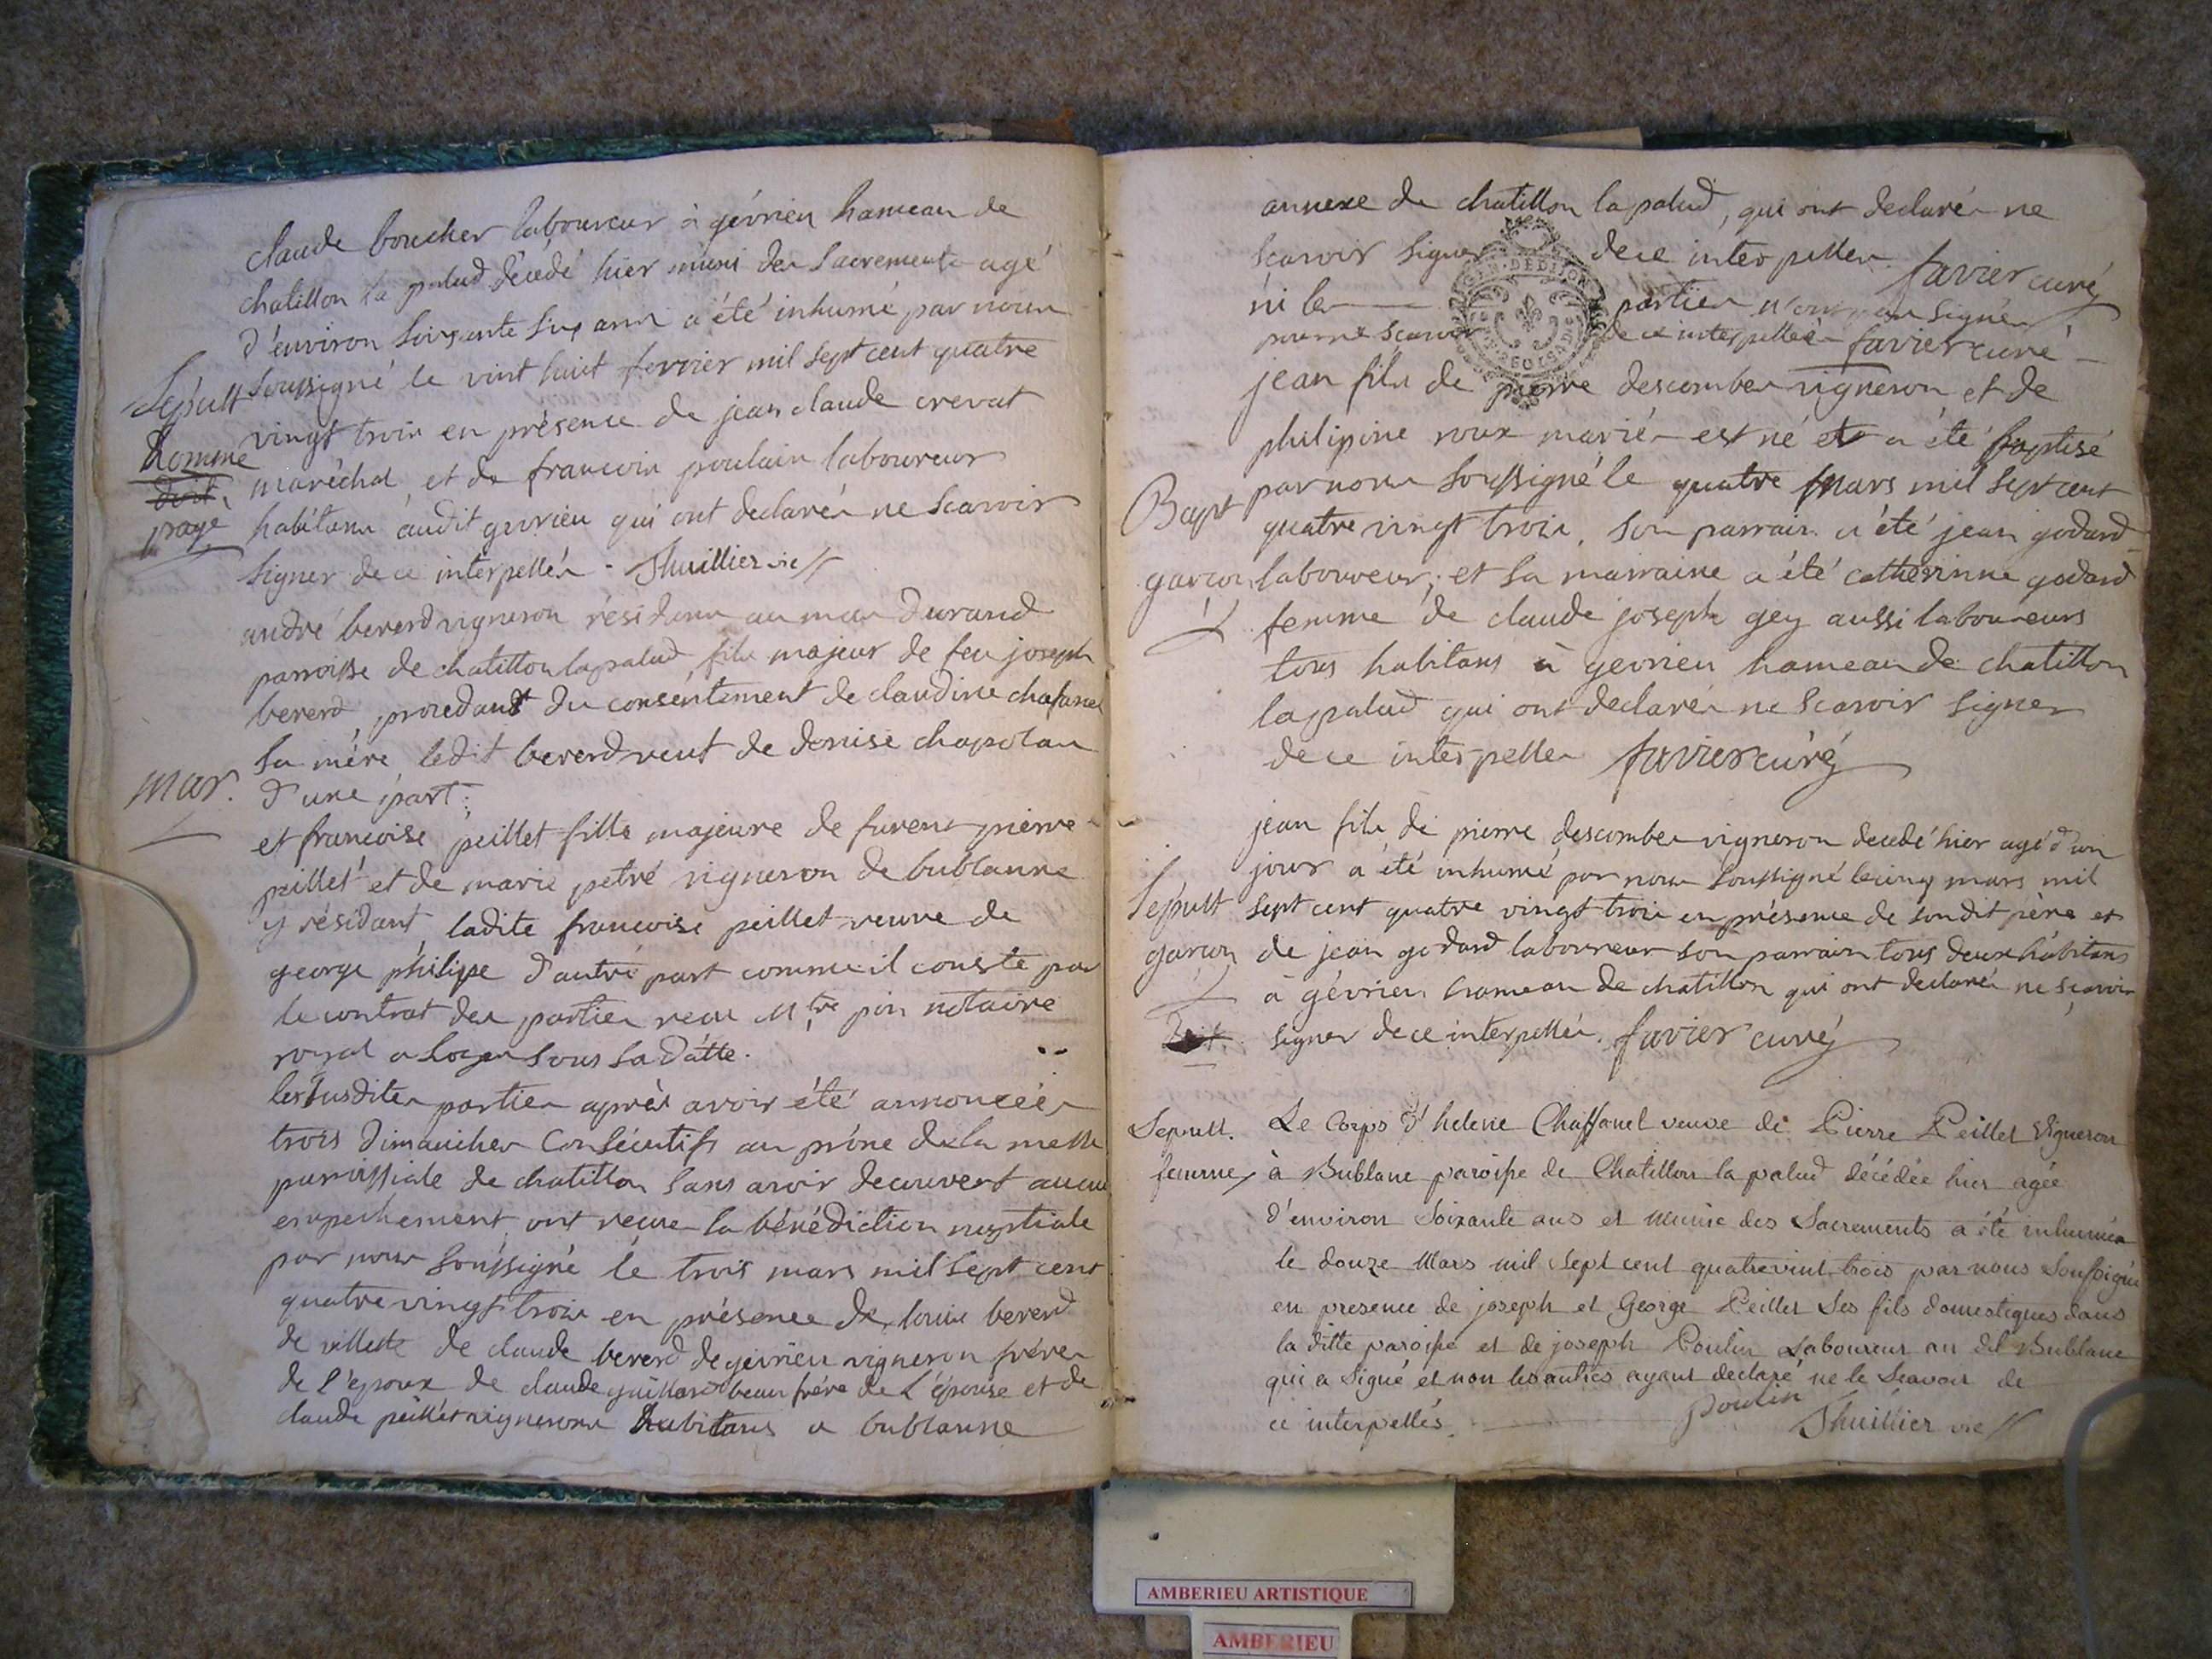 claude boucher laboureur à gévrieu hameau de
chatillon la palud décédé hier muni des sacrements agé
d'environ soixante six ans a été inhumé par nous
Sépult soussigné le vint huit fevrier mil sept cent quatre
homme vingt trois en présence de jean claude crevat
maréchal, et de francois poulain laboureur
habitans audit gevrieu qui ont declarés ne scavoir
signer de ce interpellés - Thuillier vic
andré bererd vigneron résidans au mas durand
parroisse de chatillon lapalud fils majeur de feu joseph
bererd, procedant du consentement de claudine chafanel
sa mére ledit bererd veuf de denise chapolan
mar. d'une part:
et francoise peillet fille majeure de furent pierre
peillet et de marie petré vigneron de bublanne
y résidant ladite francoise peillet veuve de
george philippe d'autre part comme il conste par
le contrat des parties recu Mtre pin notaire
royal a loyes sous sa datte.
les susdites parties après avoir été annoncées
trois dimanches consécutifs au prône de la messe
parroissiale de chatillon sans avoir decouvert aucun
empechement, ont recue la bénédiction nuptiale
par nous soussigné le trois mars mil sept cent
quatre vingt trois en présence de louis bererd
de villette de claude bererd de gévrieu vigneron fréres
de l'époux de claude guillard beau frére de l'épouse et de
claude peillet vignerons habitans a bublanne
annexe de chatillon lapalud, qui ont declarés ne
scavoir signer de ce interpelles favier curé
ni les parties n'ont pas signés
pour ne scavoir de ce interpellés favier curé
jean fils de pierre descombes vigneron et de
philipine roux mariés est né et a été baptisé
Bapt par nous soussigné le quatre mars mil sept cent
quatre vingt trois. son parrain a été jean godard
garcon laboureur; et sa marraine a été catherinne godard
femme de claude joseph gey aussi laboureurs
tous habitans à gevrieu hameau de chatillon
lapalud qui ont declarés ne scavoir signer
de ce interpelles favier curé
jean fils de pierre descombes vigneron decedé hier agé d'un
jour a été inhumé par nous soussigné le cinq mars mil
Sépult sept cent quatre vingt trois en présence de sondit père et
garcon de jean godard laboureur son parrain tous deux habitans
à gévrieu hameau de chatillon qui ont declarés ne scavoir
signer de ce interpellés. favier curé
Sepult. Le Corps d'helene Chaffanel veuve de Pierre Peillet Vigneron
femme à Bublane paroisse de Chatillon la palud décédée hier agée
d'environ soixante ans et munie des Sacrements a été inhumée
le douze Mars mil sept cent quatrevint trois par nous Soussigné
en presence de joseph et George Peillet ses fils domestiques dans
la ditte paroisse et de joseph Poulin Laboureur au dit Bublane
qui a Signé et non les autres ayant declaré ne le Scavoir de
ce interpellés. poulin Thuillier vic
AMBERIEU ARTISTIQUE
AMBERIEU